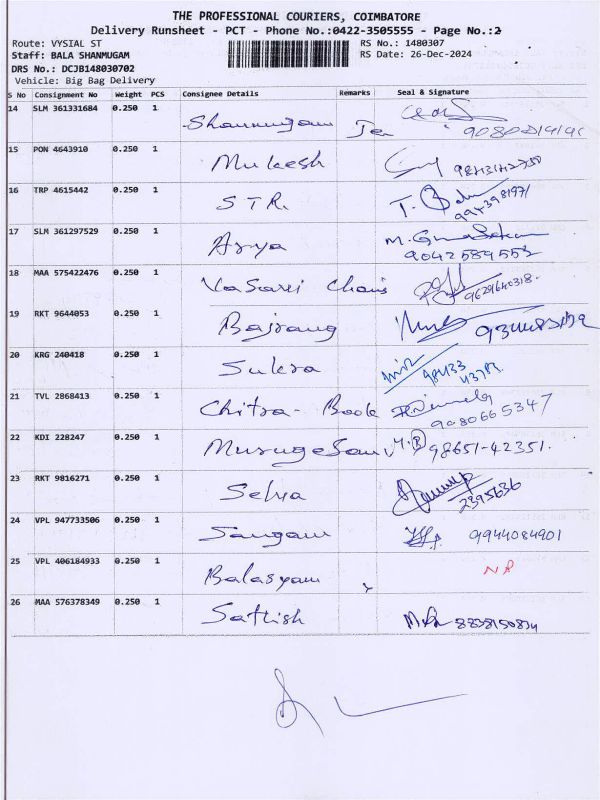 THE PROFESSIONAL COURIERS, COIMBATORE
Delivery Runsheet - PCT - Phone No.:0422-3505555 - Page No.:2
Route: VYSIAL ST RS No.: 1480307
Staff: BALA SHANMUGAM RS Date: 26-Dec-2024
DRS No.: DCJB148030702
Vehicle: Big Bag Delivery
S No Consignment No Weight PCS Consignee Details Remarks Seal & Signature
14 SLM 361331684 0.250 1 Shanmugam
15 PON 4643910 0.250 1 Mukesh
16 TRP 4615442 0.250 1 STR
17 SLM 361297529 0.250 1 Arya 9042589553
18 MAA 575422476 0.250 1 Chairs 9629640318.
19 RKT 9644053 0.250 1 Bajrang
20 KRG 240418 0.250 1 Sukra 98433
21 TVL 2868413 0.250 1 Chitra- Book 9080665347
22 KDI 228247 0.250 1 Murugesan M.R 98651-42351.
23 RKT 9816271 0.250 1 Selva 2395636
24 VPL 947733506 0.250 1 Sangam 9944084901
25 VPL 406184933 0.250 1 Balasyam NA
26 MAA 576378349 0.250 1 Sathish